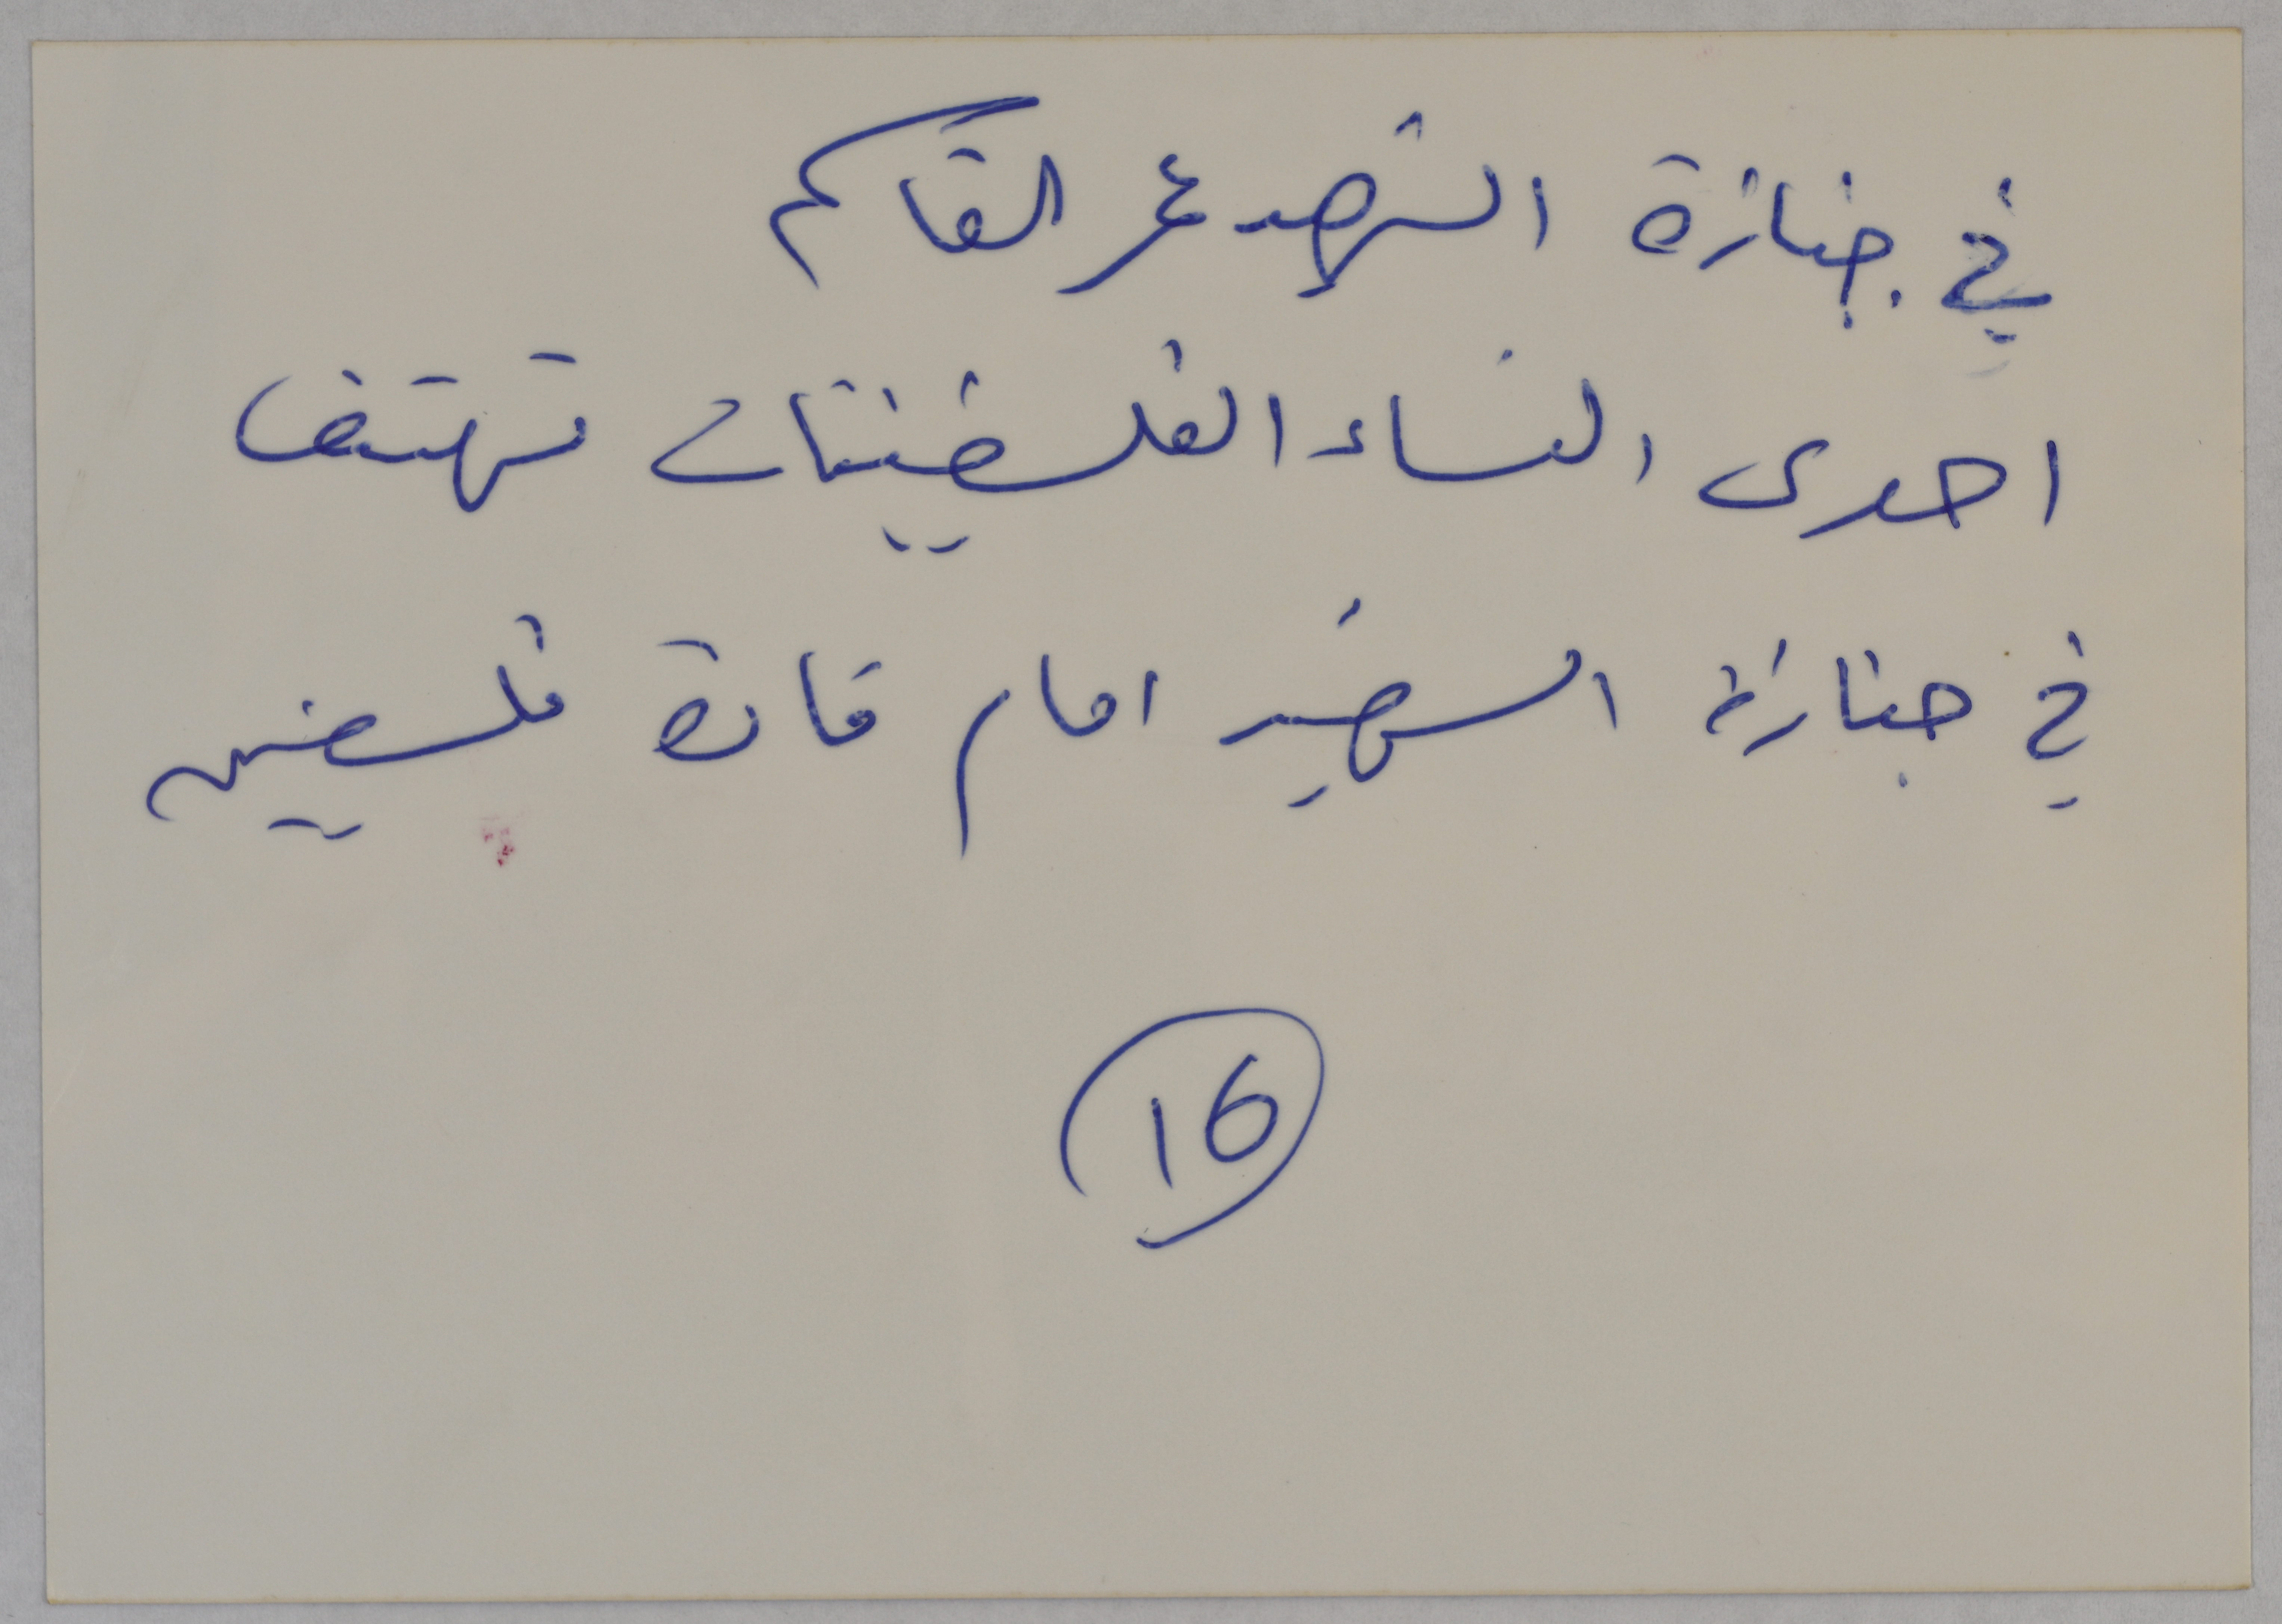 في جنازة الشهيد عمر القاسم
احدى النساء الفلسطينيات تهتف
في جنازة الشهيد امام قادة فلسطينيين
16